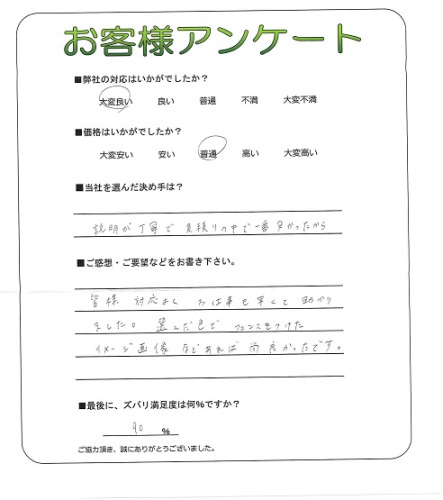 お客様アンケート
■弊社の対応はいかがでしたか？
大変良い 良い 普通 不満 大変不満
■価格はいかがでしたか？
大変安い 安い 普通 高い 大変高い
■当社を選んだ決め手は？
説明が丁寧で 見積りの中で一番安かったから
■ご感想・ご要望などをお書き下さい。
皆様 対応よく お仕事も早くて 助かり
ました。 選んだ色で フェンスをつけた
イメージ画像 などあれば 尚良かったです。
■最後に、ズバリ満足度は何%ですか？
90 %
ご協力頂き、誠にありがとうございました。